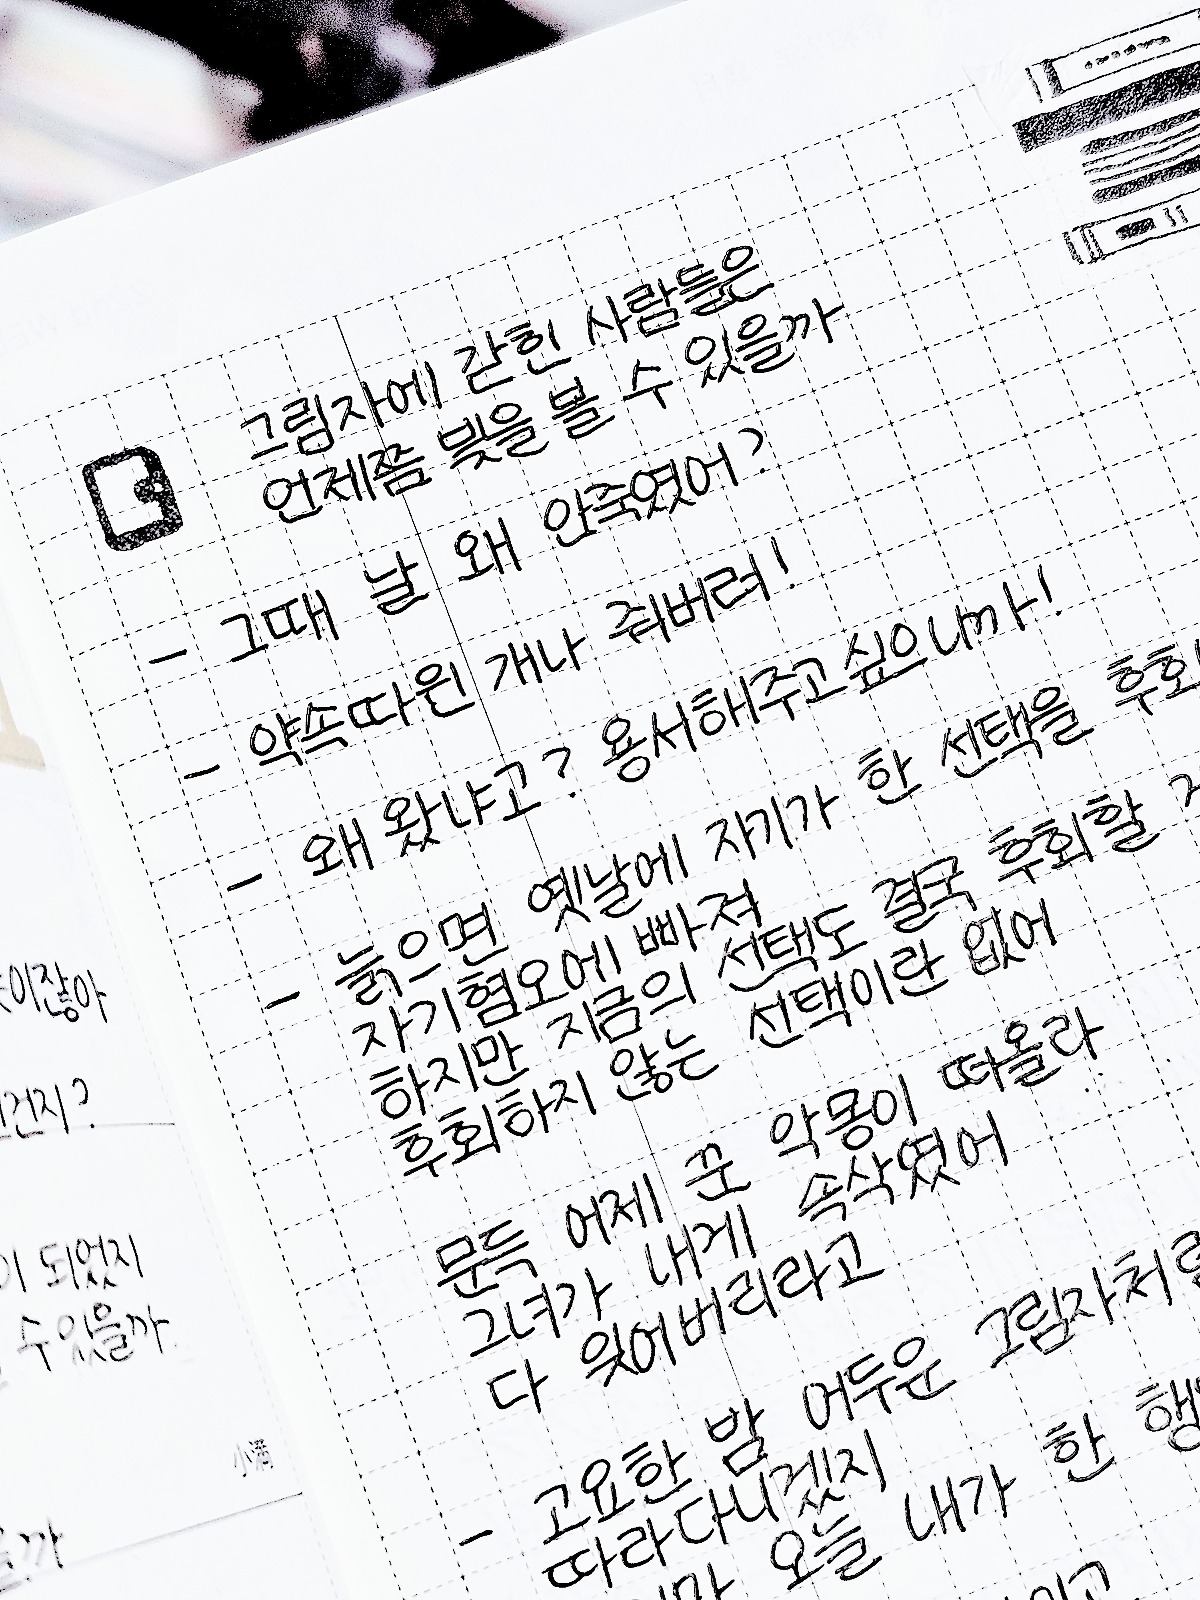 그림자에 갇힌 사람들은
언제쯤 빛을 볼 수 있을까
- 그때 날 왜 안죽였어?
- 약속따윈 개나 줘버려!
- 왜 왔냐고? 용서해주고싶으니까!
- 늙으면 옛날에 자기가 한 선택을
자기혐오에 빠져
하지만 지금의 선택도 결국 후회할
후회하지 않는 선택이란 없어
문득 어제 꾼 악몽이 떠올라
그녀가 내게 속삭였어
다 잊어버리라고
- 고요한 밤 어두운 그림자처럼
따라다니겠지
오늘 내가 한
이잖아
건지?
되었지
수있을까
小满